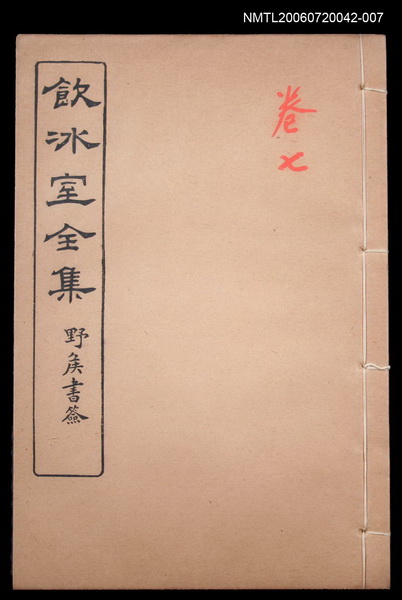 NMTL20060720042-007
卷七
飲冰室全集
野矦書簽